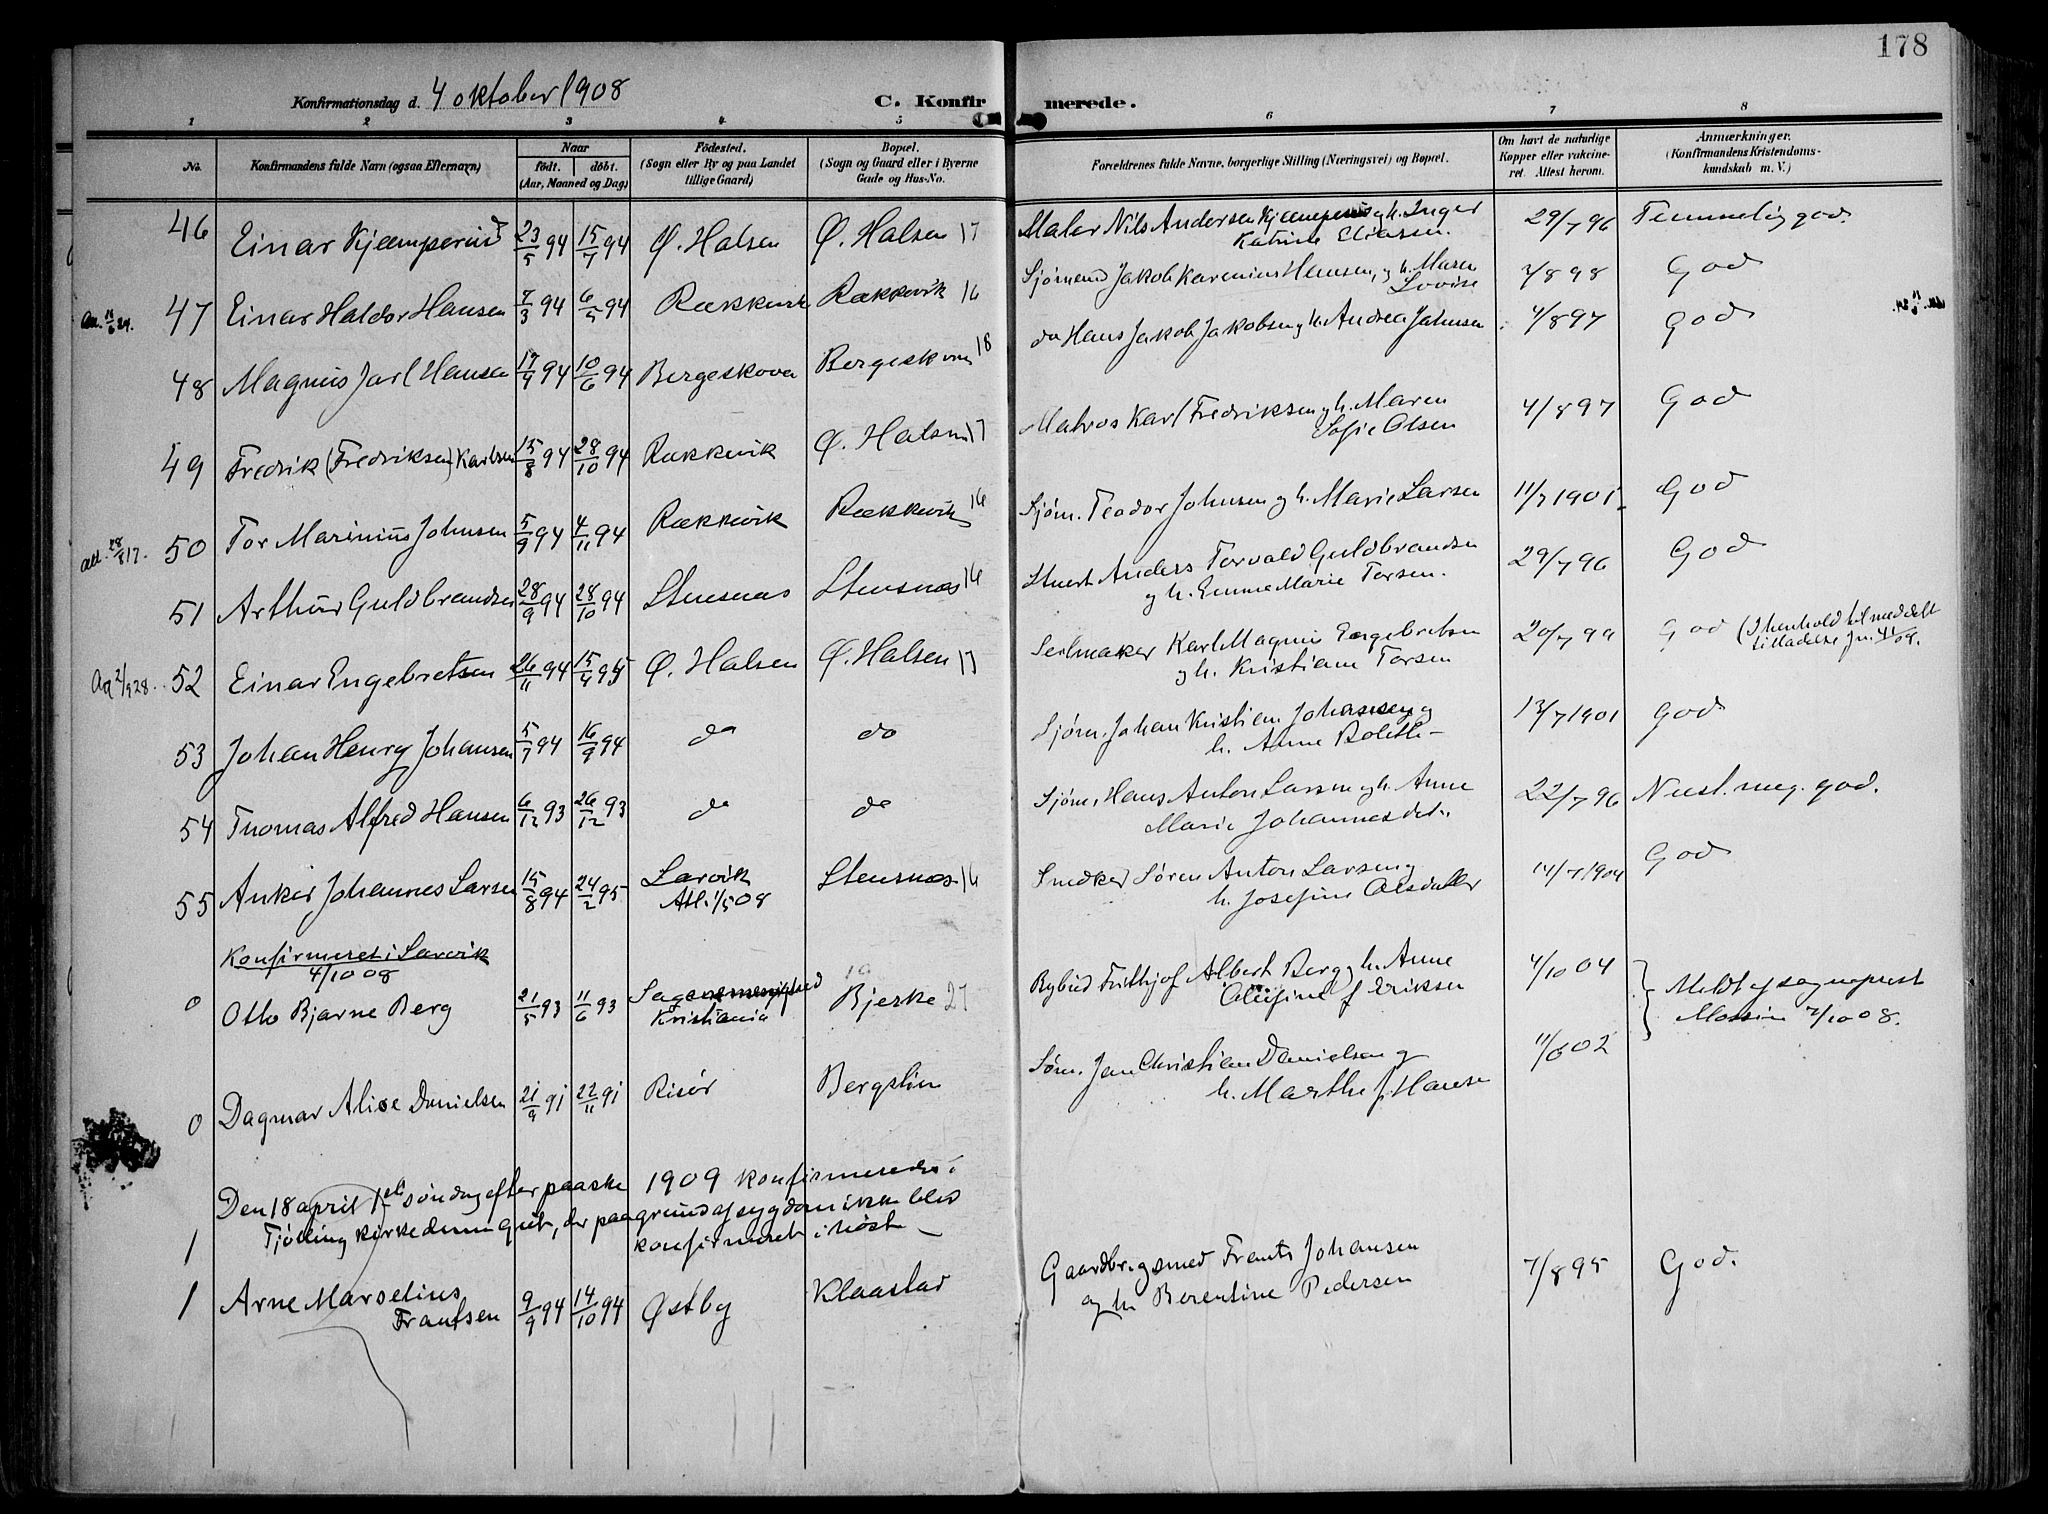 178
Konfirmationsdag d. 4 oktober 1908
C. Konfirmerede.
1 2 3 4 5 6 7 8
No. Konfirmandens fulde Navn (ogsaa Efternavn) Naar født. døbt. (Aar, Maaned og Dag) Fødested. (Sogn eller By og paa Landet tillige Gaard) Bopæl. (Sogn og Gaard eller i Byerne Gade og Hus-No. Forældrenes fulde Navne, borgerlige Stilling (Næringsvei) og Bopæl. Om havt de naturlige Kopper eller vakcineret. Attest herom. Anmærkninger. (Konfirmandens Kristendomskundskab m. V.)
46 Einar Kjæmperud 23/5 94 15/7 94 Ø. Halsen Ø. Halsen 17 Maler Nils Andersen Kjæmperud og h. Inger Katrine Eliasen. 29/7 96 Temmelig god.
47 Einar Haldor Hansen 7/3 94 6/5 94 Rækkevik Rækkevik 16 Sjømand Jakob Karenius Hansen, og h. Maren Lovise 2/8 98 God
48 Magnus Jarl Hansen 17/4 94 10/6 94 Bergeskova Bergeskova 18 do Hans Jakob Jakobsen og h. Andrea Jahnsen 4/8 97 God
49 Fredrik (Fredriksen) Karlsen 15/8 94 28/10 94 Rækkevik Ø. Halsen 17 Matros Karl Fredriksen og h. Maren Sofie Olsen 4/8 97 God
att. 28/8 17. 50 Tor Marinius Johnsen 5/9 94 4/11 94 Rækkevik Rækkevik 16 Sjøm. Teodor Johnsen og h. Marie Larsen 11/7 1901. God
51 Arthur Guldbrandsen 28/9 94 28/10 94 Stensnæs Stensnæs 16 Stuert Anders Torvald Guldbrandsen og h. Emma Marie Torsen. 29/7 96 God
52 Einar Engebretsen 26/11 94 15/4 95 Ø. Halsen Ø. Halsen 17 Seilmaker Karl Magnus Engebretsen og h. Kristiane Torsen 20/7 99 God (I henhold til meddelt tilladelse
53 Johan Henry Johansen 5/7 94 16/9 94 do do Sjøm. Johan Kristian Johansen og h. Anne Bolethe 13/7 1901 God
54 Thomas Alfred Hansen 6/12 93 26/12 93 do do Sjøm. Hans Anton Larsen og h. Anne Marie Johannesdat. 22/7 96 Næst. meg. god.
55 Anker Johannes Larsen 15/8 94 24/2 95 Larvik Att. 1/5 08 Stensnæs 16 Snedker Søren Anton Larsen og h. Josefine Olsdatter 14/7 1904 God
Konfirmeret i Larvik 4/10 08
0 Otto Bjarne Berg 21/5 93 11/6 93 Sagenes menighed Kristiania Bjerke 27 Rybud Frithjof Albert Berg og h. Anne Olufine f Eriksen 4/10 04 Meldt af sogneprest Mossin 7/10 08.
0 Dagmar Alise Danielsen 21/9 91 22/11 91 Risør Bergslien Søm. Jan Christian Danielsen og h. Marthe f. Hansen 11/6 02
1 Den 18 april 1ste søndag efter paaske 1909 konfirmeredes i
Tjølling kirke denne gut, der paa grund af sygdom ikke blev
konfirmeret i høst
1 Arne Marselius Frantsen 9/9 94 14/10 94 Østby Klaastad Gaardbr. og smed Frants Johansen og h. Berentine Pedersen 7/8 95 God.